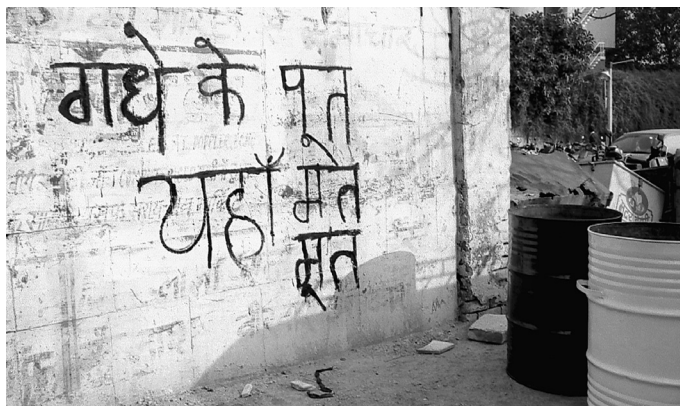 गधे के पूत
यहाँ मत
मूत